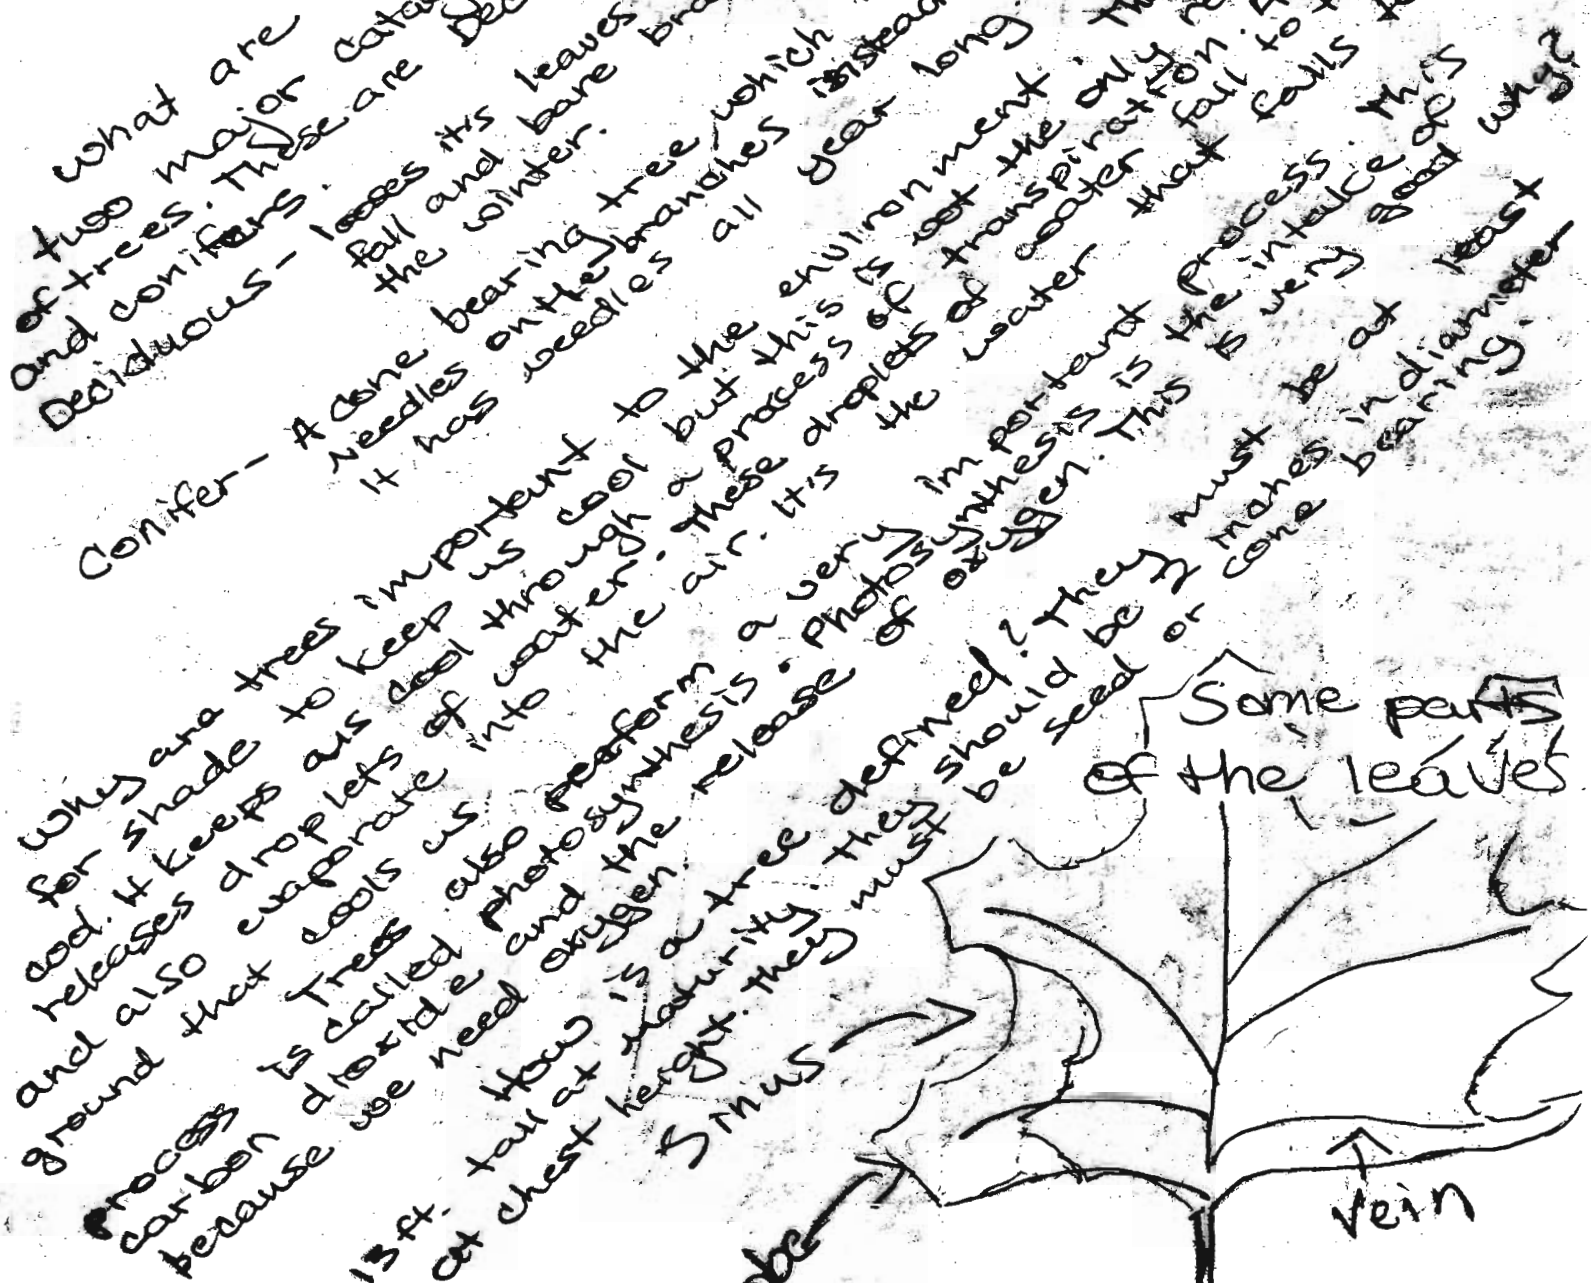 what are
two major
of trees. These are
and conifers.
Deciduous- looses it's leaves
fall and bare
the winter.
Conifer- A cone bearing tree which
needles on the branches instead
It has needles all year long.
Why are trees important to the environment.
for shade to keep us cool but this is not the only
cool. It keeps us cool through a process of transpiration.
releases droplets of water. These droplets of water fall to
and also evaporate into the air. It's the water that falls
ground that cools us.
Trees also perform a very important process. This
process is called photosynthesis. Photosynthesis is the intake of
carbon dioxide and the release of oxygen. This is very good why?
because we need oxygen.
How is a tree defined? They must be at least
13 ft. tall at maturity. they should be 7 inches in diameter
at chest height. They must be seed or cone bearing.
Some parts
of the leaves
Sinus
vein